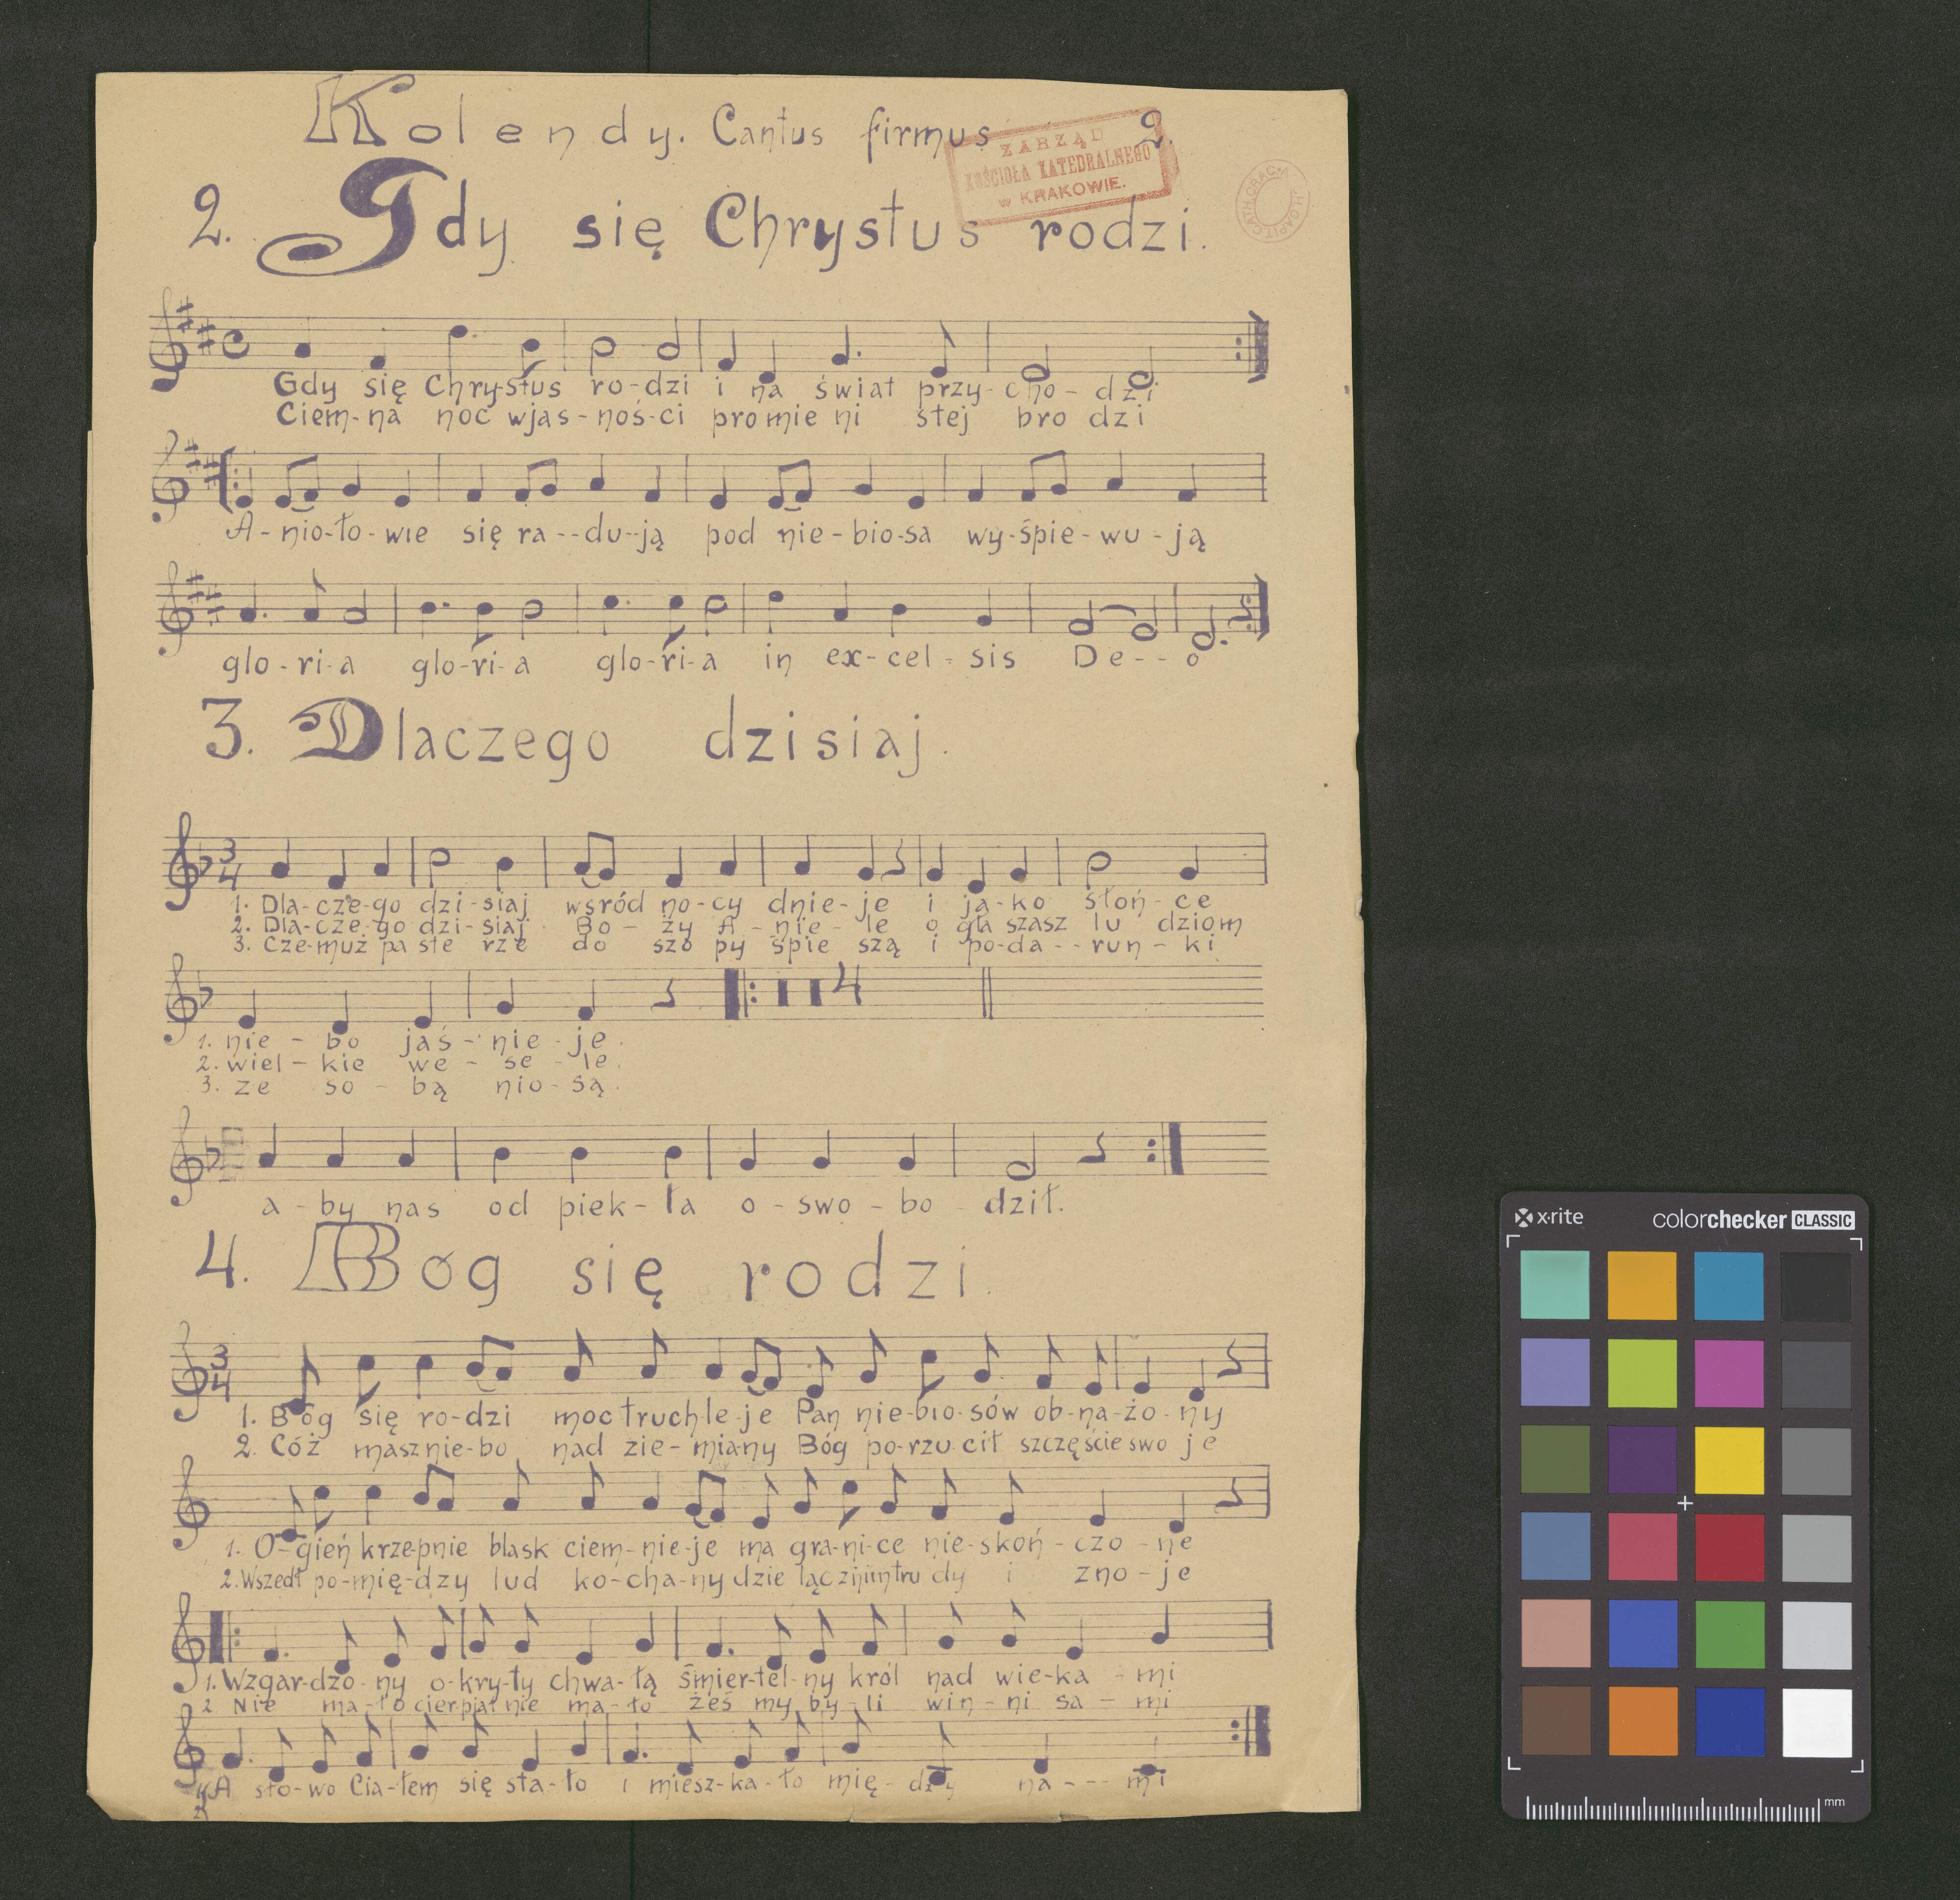 Kolendy. Cantus firmus 2.
ZARZĄD
KOŚCIOŁA KATEDRALNEGO
w KRAKOWIE.
2. Gdy się Chrystus rodzi.
Gdy się Chry-stus ro-dzi i na świat przy-cho-dzi
Ciem-na noc wjas-noś-ci promie ni stej bro dzi
A-nio-ło-wie się ra--du--ją pod nie-bio-sa wy-śpie-wu-ją
glo-ri-a glo-ri-a glo-ri-a in ex-cel-sis De--o
3. Dlaczego dzisiaj.
3 4
1. Dla-cze-go dzi-siaj wsród no-cy dnie-je i ja-ko słoń-ce
2. Dla-cze-go dzi-siaj Bo-ży A-nie-le o gła szasz lu dziom
3. Cze-muż pa ste rze do szo py śpie szą i po-da--run-ki
4
1. nie-bo jaś-nie-je.
2. wiel-kie we-se-le.
3. ze so-bą nio-są.
a-by nas od piek-ła o-swo-bo-dził.
4. Bóg się rodzi.
3 4
1. Bóg się ro-dzi moc truch-le-je Pan nie-bio-sów ob-na-żo-ny
2. Cóż masz nie-bo nad zie-mia-ny Bóg po-rzu-cił szczęście swo je
1. O-gień krze-pnie blask ciem-nie-je ma gra-ni-ce nie-skoń-czo-ne
2. Wszedł po-mię-dzy lud ko-cha-ny dzie ląc znim tru dy i zno-je
1. Wzgar-dzo-ny o-kry-ty chwa-łą śmier-tel-ny król nad wie-ka-mi
2 Nie ma-ło cier-piał nie ma-ło żeś my by-li win-ni sa-mi
A sło-wo Cia-łem się sta-ło i miesz-ka-ło mię-dzy na---mi
x·rite colorchecker CLASSIC
mm